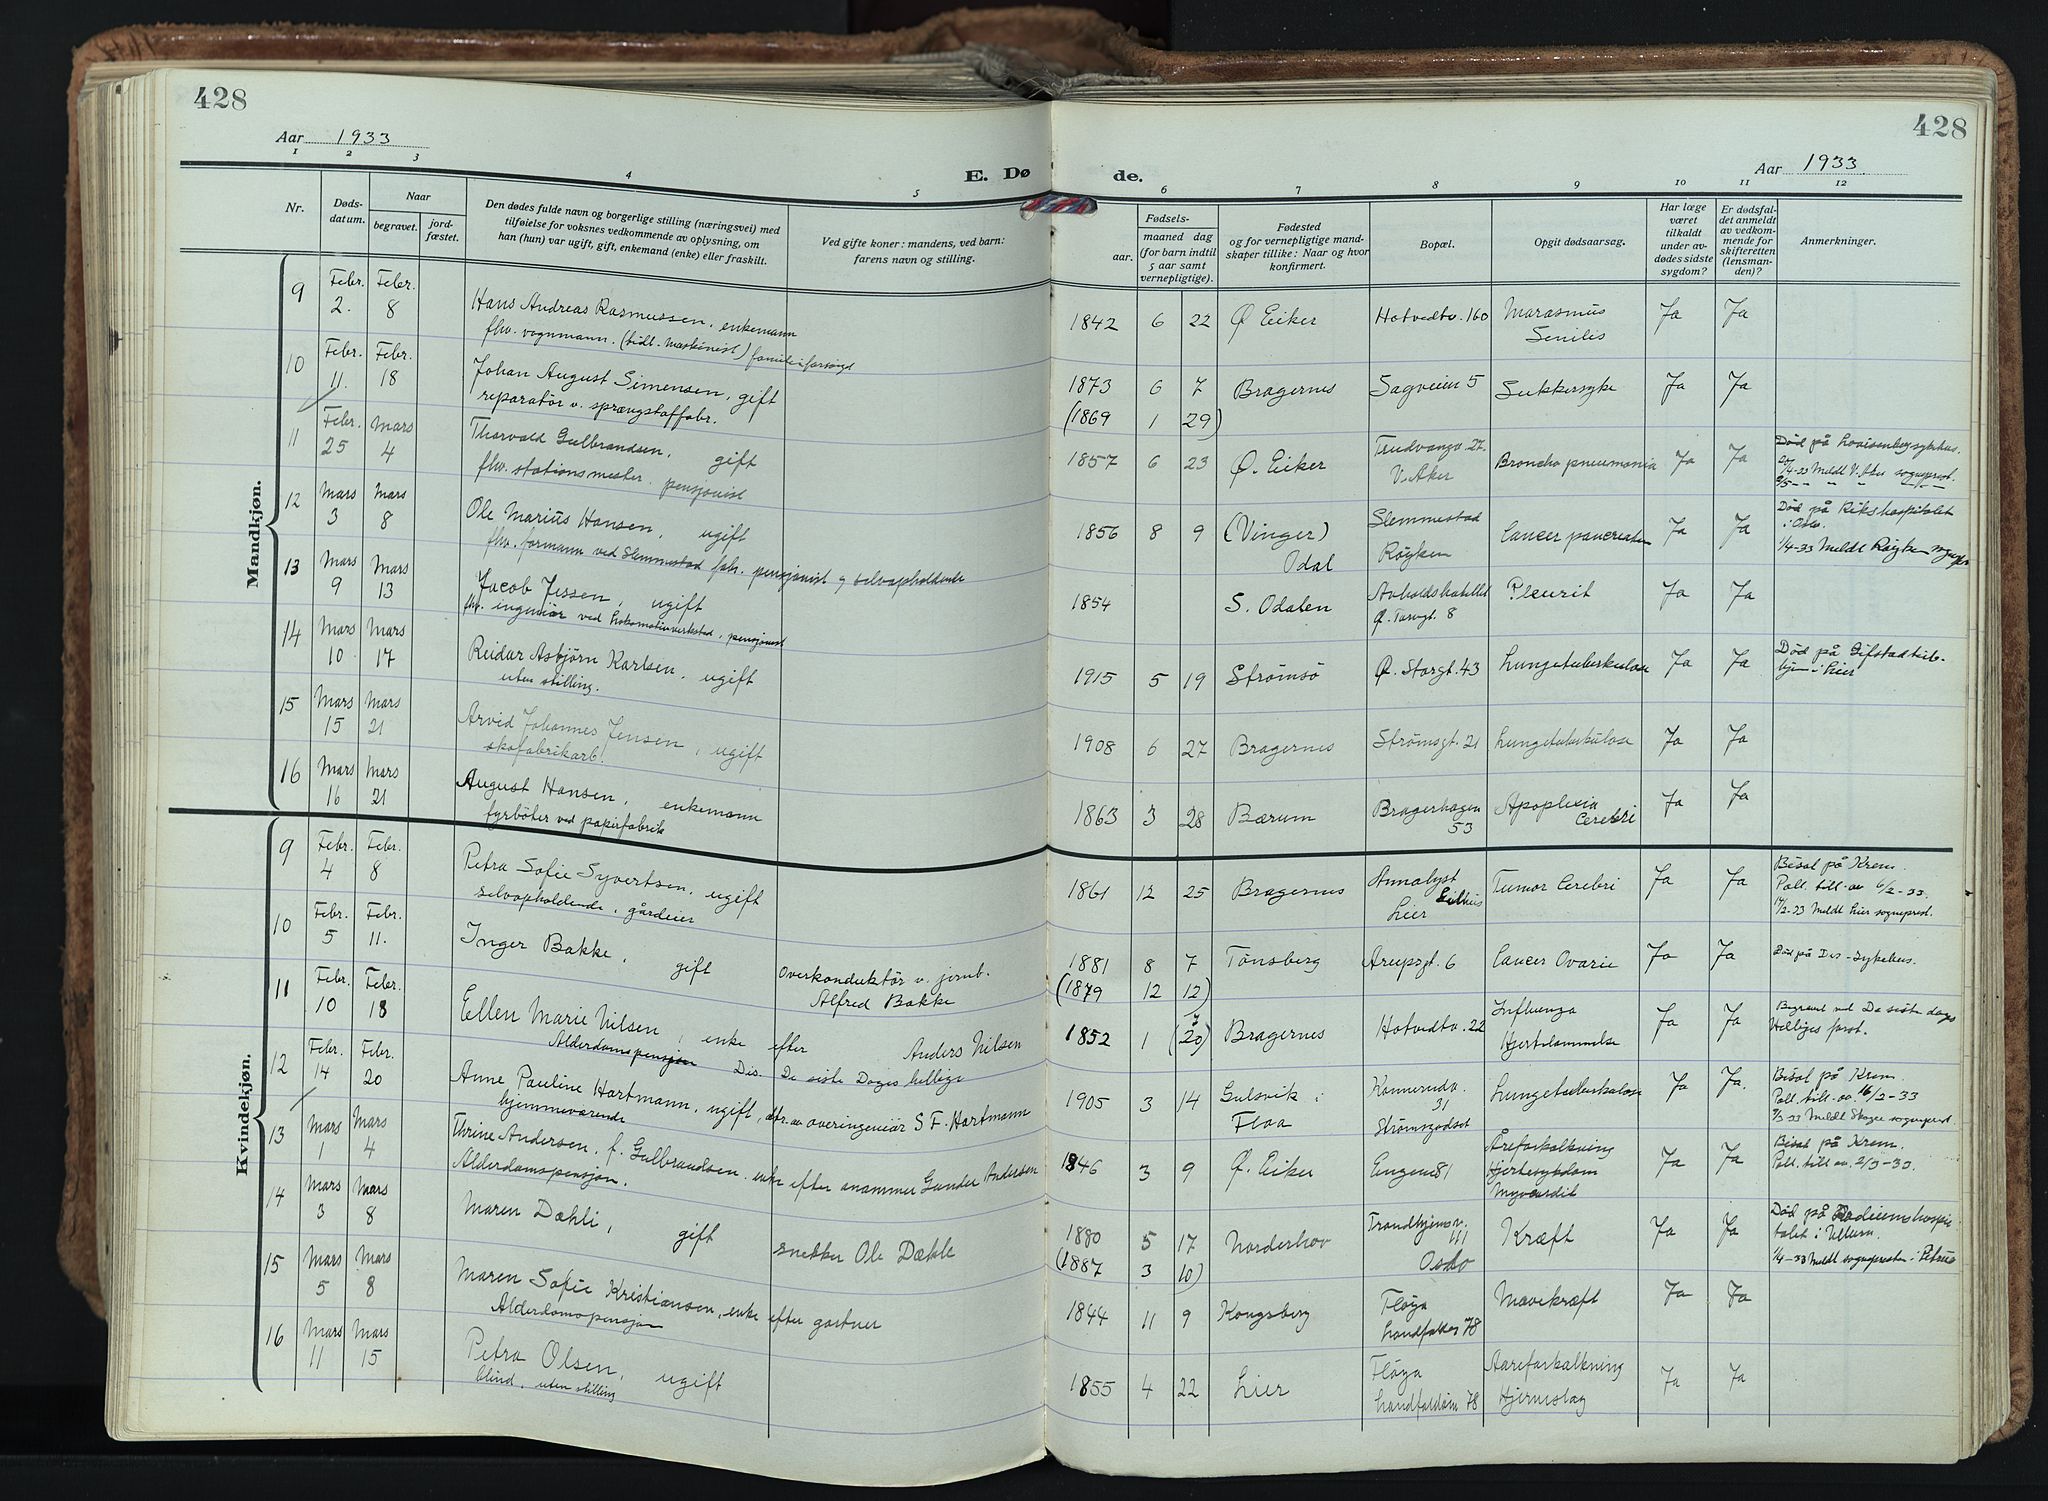 428
428
Aar 1933
Aar 1933
E. Dø de.
1 2 3 4 5 6 7 8 9 10 11 12
Nr.
Dødsdatum.
Naar
begravet.
jordfæstet.
Den dødes fulde navn og borgerlige stilling (næringsvei) med
tilføielse for voksnes vedkommende av oplysning, om
han (hun) var ugift, gift, enkemand (enke) eller fraskilt.
Ved gifte koner: mandens, ved barn:
farens navn og stilling.
Fødsels-
aar. maaned dag
(for barn indtil
5 aar samt
vernepligtige).
Fødested
og for vernepligtige mandskaper tillike: Naar og hvor
konfirmert.
Bopæl.
Opgit dødsaarsag.
Har læge
været
tilkaldt
under avdødes sidste
sygdom?
Er dødsfaldet anmeldt
av vedkommende for
skifteretten
(lensmanden)?
Anmerkninger.
Mandkjøn.
9 Febr. 2. Febr. 8 Hans Andreas Rasmussen, enkemann
fhv. vognmann. (tidl. maskinist) familieforsørget
1842 6 22 Ø Eiker Hotvedtv. 160 Marasmus Senilis Ja Ja
10 Febr. 11. Febr. 18 Johan August Simensen, gift
reparatør v. sprængstoffabr.
1873 6 7 Bragernes Sagveien 5 Sukkersyke Ja Ja
(1869 1 29)
11 Febr. 25 Mars 4 Thorvald Gulbrandsen, gift
fhv. stationsmester. pensjonist
1857 6 23 Ø. Eiker Trudvangv. 27. V. Aker Broncho pneumonia Ja Ja Død på Lovisenberg sykehus.
Meldt V. Aker sogneprest.
12 Mars 3 Mars 8 Ole Marius Hansen, ugift
fhv. formann ved Slemmestad fabr. pensjonist og selvopholdende
1856 8 9 (Vinger) Odal Slemmestad Røyken Cancer pancreaten Ja Ja Død på Rikshospitalet
i Oslo.
1/4-33 Meldt Røyken sognepr.
13 Mars 9 Mars 13 Jacob Jessen, ugift
fhv. ingeniør ved Lokomotivverksted, pensjonist
1854 S. Odalen Avholdshotellet Ø. Torvgt. 8 Pleurit Ja Ja
14 Mars 10 Mars 17 Reidar Asbjørn Karlsen, ugift
uten stilling.
1915 5 19 Strømsø Ø. Storgt. 43 Lungetuberkulose Ja Ja Død på Gifstad tub-
hjem i Lier
15 Mars 15 Mars 21 Arvid Johannes Jensen, ugift
skofabrikarb.
1908 6 27 Bragernes Strømsgt. 21 Lungetuberkulose Ja Ja
16 Mars 16 Mars 21 August Hansen, enkemann
fyrbøter ved papirfabrik
1863 3 28 Bærum Bragerhagen 53 Apoplexia Cerebri Ja Ja
Kvindekjøn.
9 Febr. 4 Febr. 8 Petra Sofie Syvertsen, ugift
selvopholdende, gårdeier
1861 12 25 Bragernes Annalyst Gullhus Lier Tumor Cerebri Ja Ja Bisat på Krem.
Poll. till. av 6/2-33.
17/2-33 Meldt Lier sogneprest.
10 Febr. 5 Febr. 11. Inger Bakke, gift overkonduktør v. jernb.
Alfred Bakke
1881 8 7 Tønsberg Arupsgt. 6 Cancer Ovarie Ja Ja Død på Drs. sykehus.
(1879 12 12)
11 Febr. 10 Febr. 18 Ellen Marie Nilsen, enke efter Anders Nilsen
Alderdomspensjon Dis. De siste Dages hellige
1852 1 (20) Bragernes Hotvedtv. 22 Influenza Hjertelammelse Ja Ja Begravet ved De siste dages
Helliges prest.
12 Febr. 14 Febr. 20 Anne Pauline Hartmann, ugift, dtr. av overingeniør S. F. Hartmann
hjemmeværende
1905 3 14 Gulsvik i Flaa Konnerudv. 31 Strømsgodset Lungetuberkulose Ja Ja. Bisat på Krem.
Poll. till. av. 16/2-33
7/3-33 Meldt Skoger sogneprest
13 Mars 1 Mars 4 Thrine Andersen, f. Gulbrandsen. enke efter snømmer Gunder Andersen
Alderdomspensjon.
1846 3 9 Ø. Eiker Engene 81 Åreforkalkning Hjertesykdom Myocardit Ja Ja Bisat på Krem.
Poll. till av. 2/3-33.
14 Mars 3 Mars 8 Maren Dæhli, gift snekker Ole Dæhli
1880 5 17 Norderhov Trondhjemsv. 111 Oslo Kræft Ja Ja Død på Radiumshospitalet i Ullern.
1/4-33 Meldt sognepresten i Petrus
(1887 3 10)
15 Mars 5 Mars 8 Maren Sofie Kristiansen, enke efter gartner
Alderdomspensjon
1844 11 9 Kongsberg Fløya Landfalløen 78 Mavekræft Ja Ja
16 Mars 11 Mars 15 Petra Olsen, ugift
blind, uten stilling
1855 4 22 Lier Fløya Landfalløen 78 Aareforkalkning Hjerneslag Ja Ja